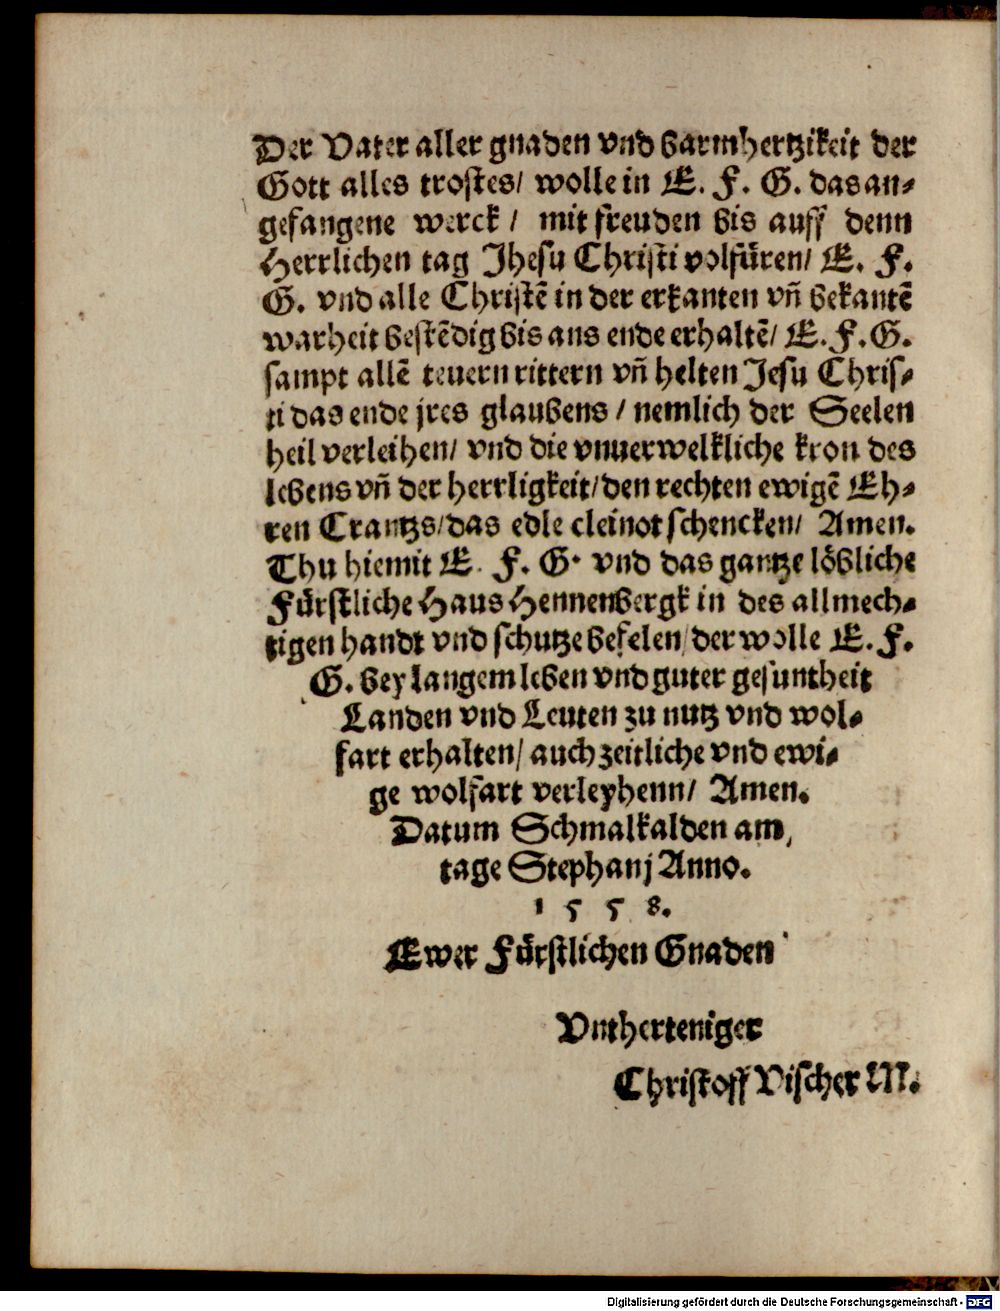 Der Vater aller gnaden vnd barmhertzikeit der
Gott alles trostes/ wolle in E. F. G. das an⸗
gefangene werck / mit freuden bis auff denn
Herrlichen tag Jhesu Christi volfüren/ E. F.
G. vnd alle Christē in der erkanten vñ bekantē
warheit bestēdig bis ans ende erhaltē/ E. F. G.
sampt allē teuern rittern vñ helten Jesu Chris⸗
ti das ende jres glaubens / nemlich der Seelen
heil verleihen/ vnd die vnuerwelkliche kron des
lebens vñ der herrligkeit/ den rechten ewigē Eh⸗
ren Crantzs/ das edle cleinot schencken/ Amen.
Thu hiemit E. F. G. vnd das gantze löbliche
Fürstliche Haus Hennenbergk in des allmech⸗
tigen handt vnd schutze befelen/ der wolle E. F.
G. bey langem leben vnd guter gesuntheit
Landen vnd Leuten zu nutz vnd wol⸗
fart erhalten/ auch zeitliche vnd ewi⸗
ge wolfart verleyhenn/ Amen.
Datum Schmalkalden am
tage Stephanj Anno.
1 5 5 8.
Ewer Fürstlichen Gnaden
Vntherteniger
Christoff Vischer M.
Digitalisierung gefördert durch die Deutsche Forschungsgemeinschaft - DFG